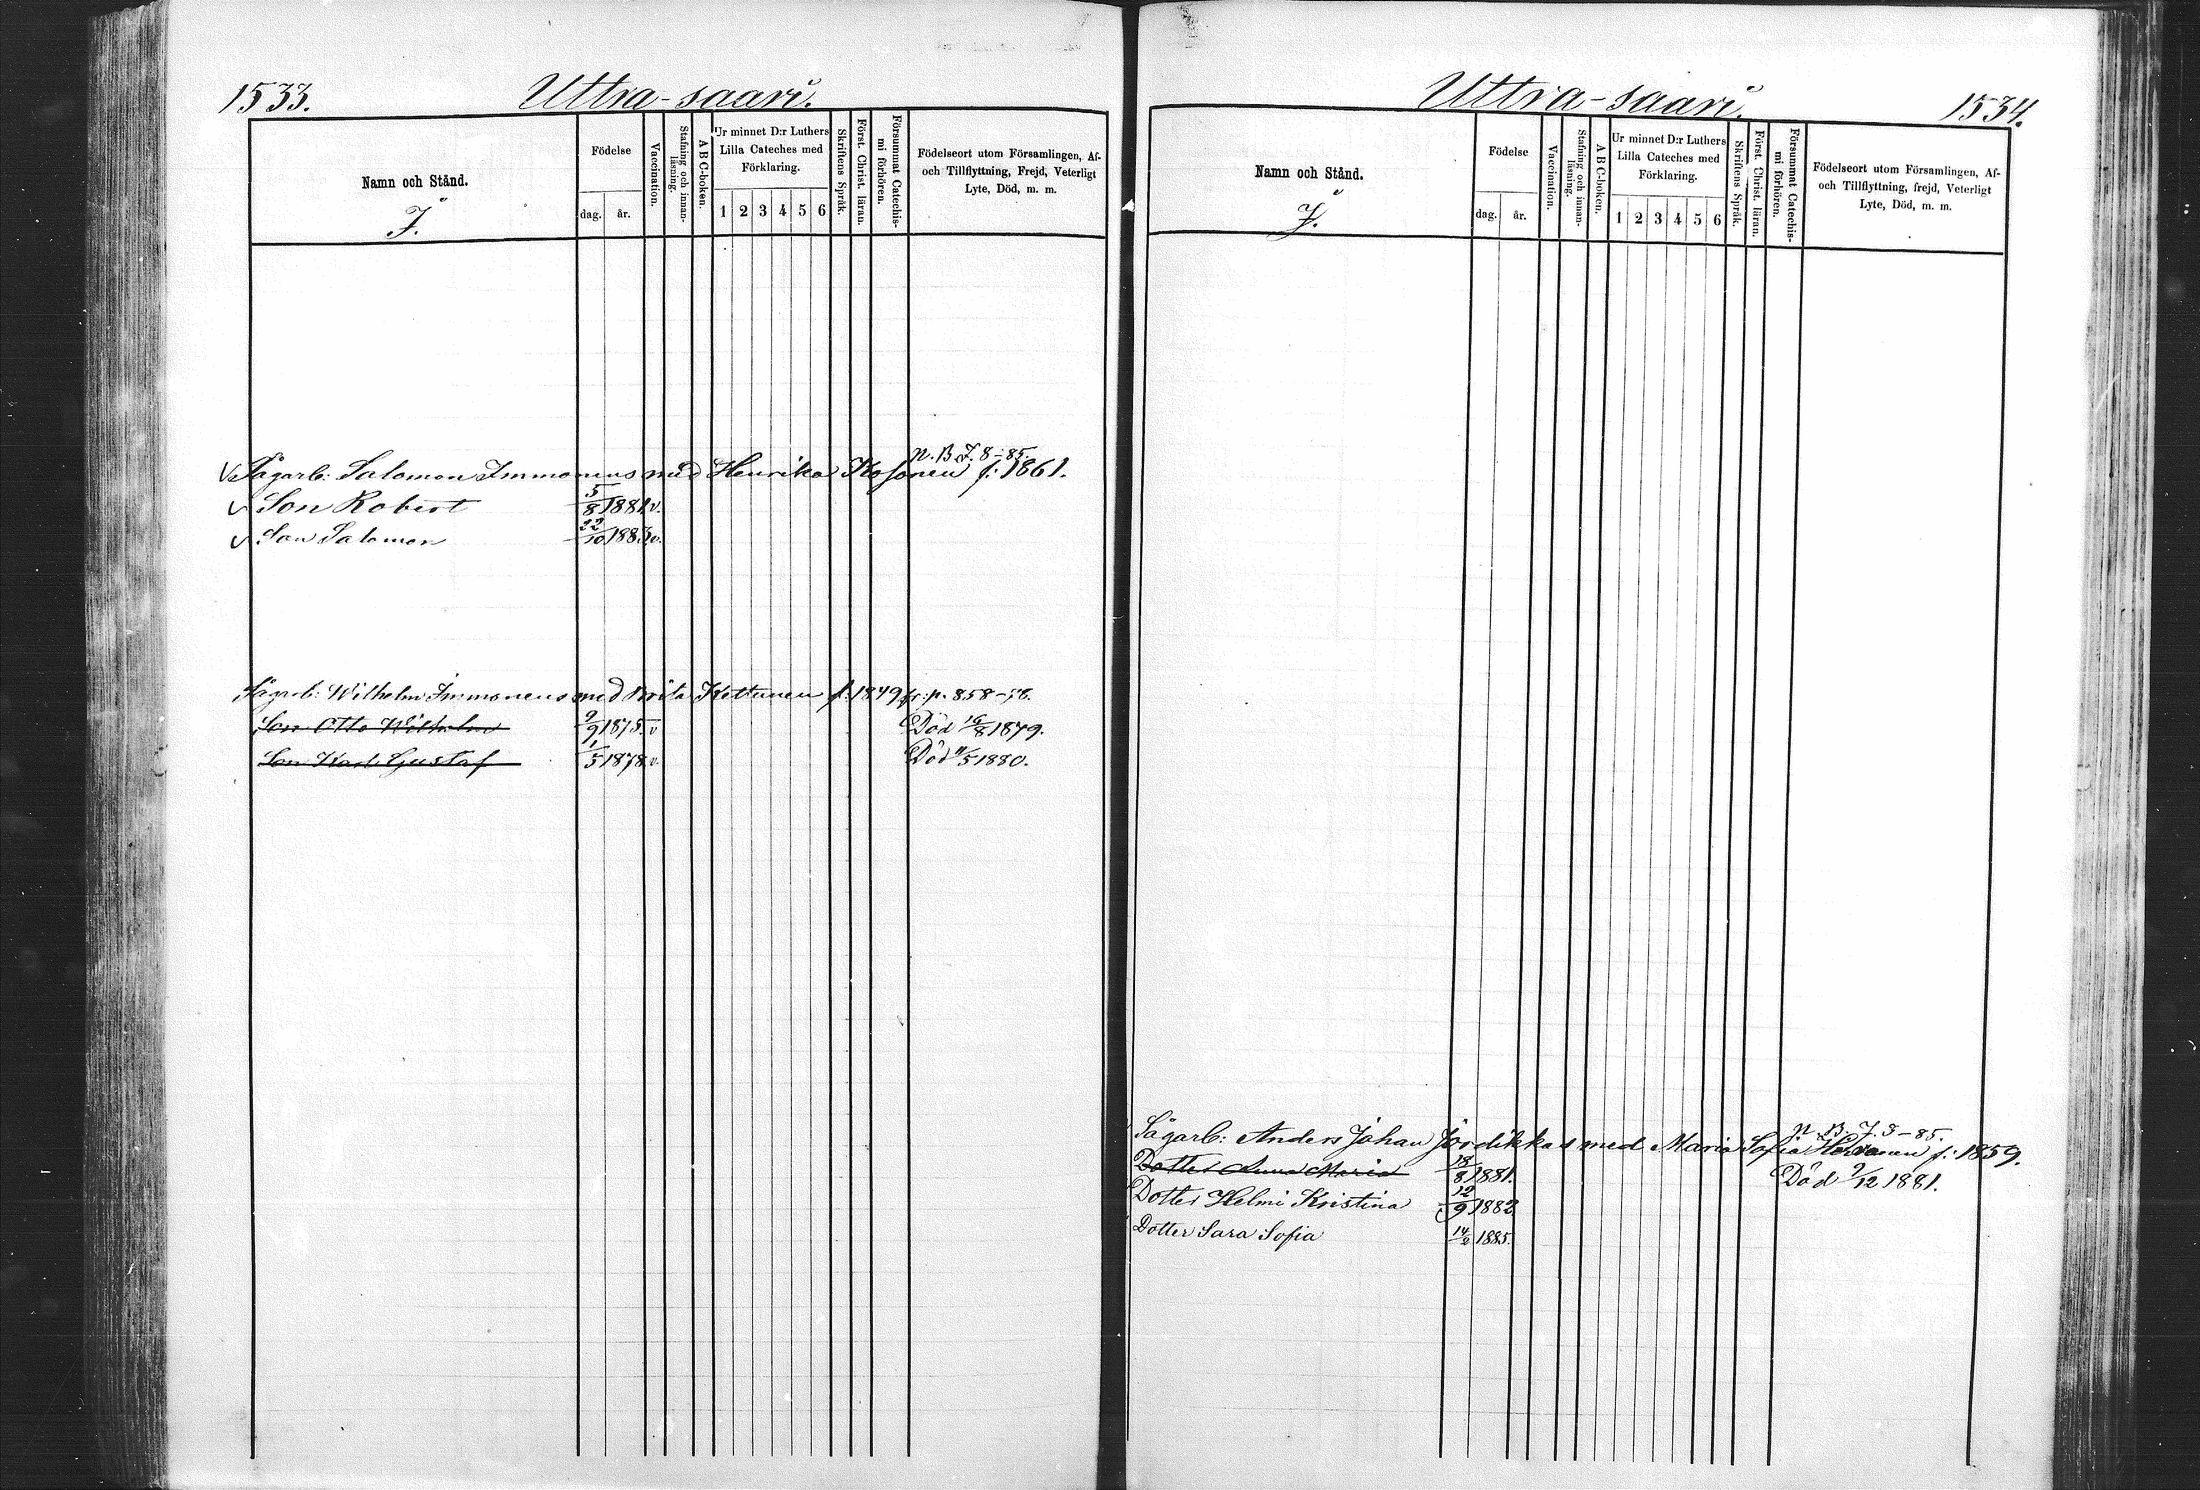 1533.
Uttra-saari.
Namn och Stånd.
J.
Födelse
dag.
år.
Vaccination.
Stafning och innan-
läsning.
A B C-boken.
Ur minnet D:r Luthers
Lilla Cateches med
Förklaring.
1 2 3 4 5 6
Skriftens Språk.
Först. Christ. läran.
Försummat Catechis-
mi förhören.
Födelseort utom Församlingen, Af-
och Tillflyttning, Frejd, Veterligt
Lyte, Död, m. m.
N. B. J. 8-85.
Sågarb: Salomon Immonens med Henrika Kosonen f: 1861.
Son Robert 5/8 1881. v.
Son Salomon 22/10 1883. v.
Sågarb: Wilhelm Immonens med Brita Kettunen f. 1849 fr. p. 858-78.
Son Otto Wilhelm 9/9 1875. v Död 16/8 1879.
Son Karl Gustaf 1/5 1878 v. Död 11/5 1880.
Uttra-saari.
1534.
Namn och Stånd.
J.
Födelse
dag.
år.
Vaccination.
Stafning och innan-
läsning.
A B C-boken.
Ur minnet D:r Luthers
Lilla Cateches med
Förklaring.
1 2 3 4 5 6
Skriftens Språk.
Först. Christ. läran.
Försummat Catechis-
mi förhören.
Födelseort utom Församlingen, Af-
och Tillflyttning, frejd, Veterligt
Lyte, Död, m. m.
N. B. J. 8-85.
Sågarb: Anders Johan Jordikkas med Maria Sofia f: 1859.
Dotter Anna Maria 18/8 1881. Död 9/12 1881.
Dotter Helmi Kristina 12/9 1883
Dotter Sara Sofia 14/2 1885.